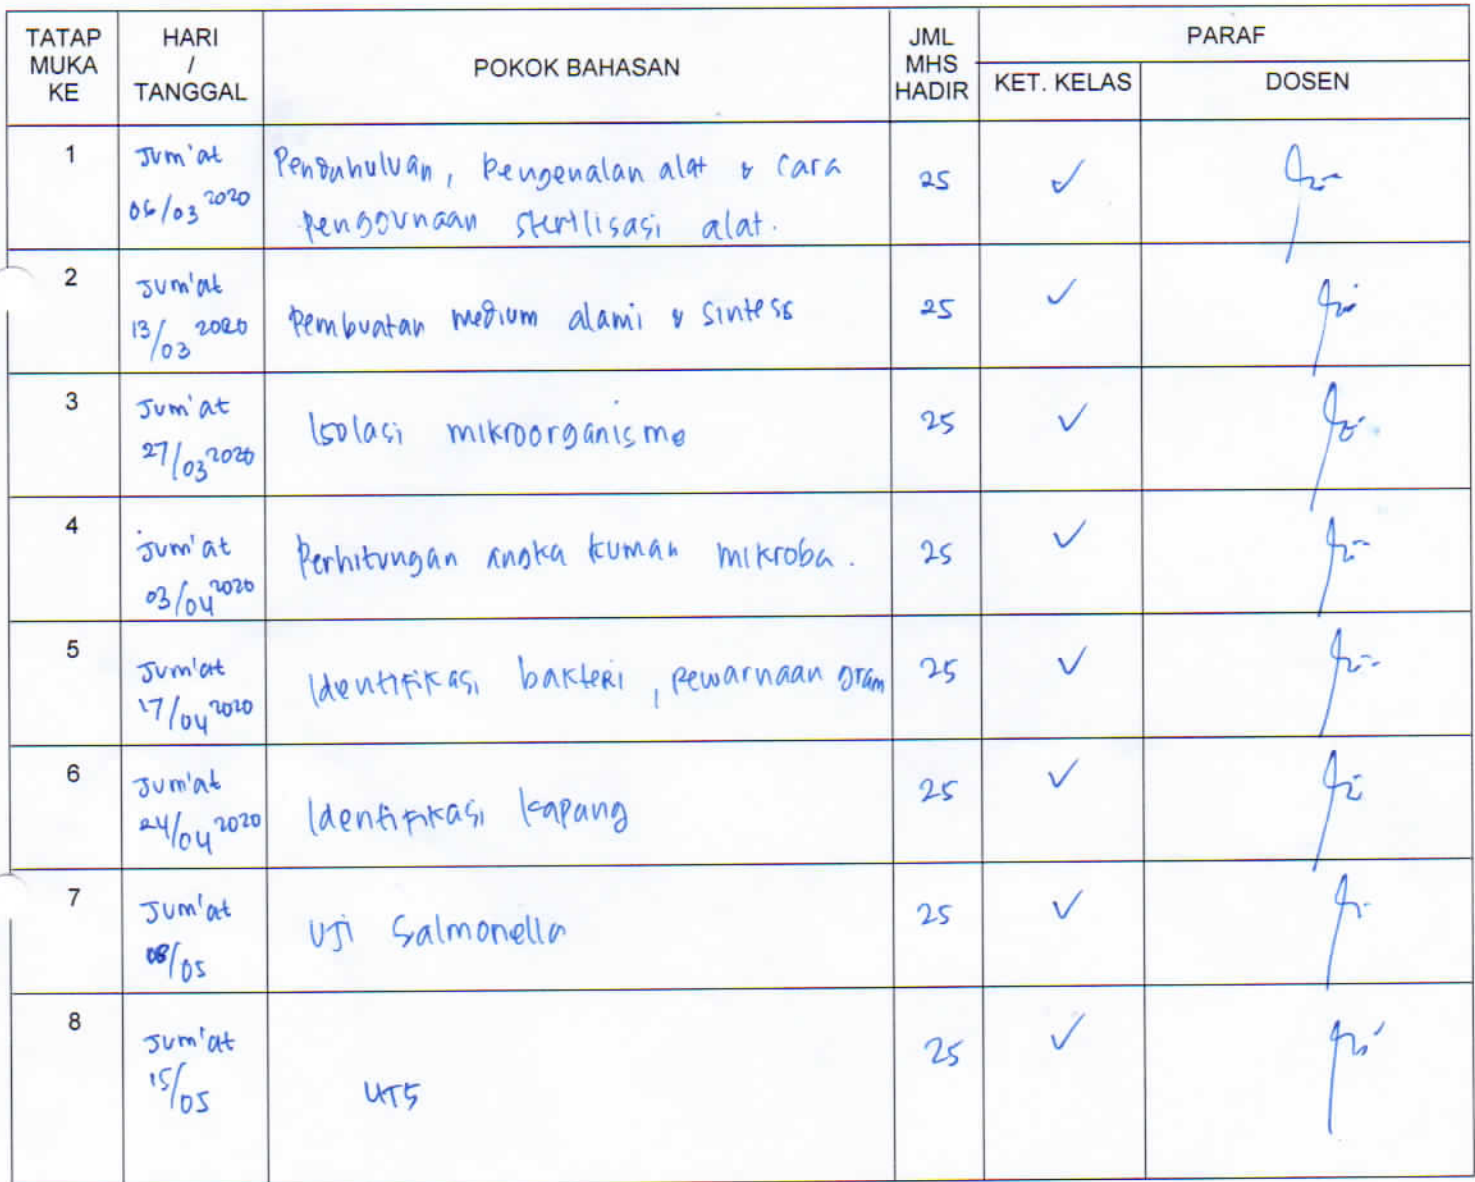 TATAP MUKA KE
HARI / TANGGAL
POKOK BAHASAN
JML MHS HADIR
PARAF
KET. KELAS
DOSEN
1
Jum'at
06/03 2020
Pendahuluan, Pengenalan alat & cara
penggunaan sterilisasi alat.
25
✓
2
Jum'at
13/03 2020
Pembuatan medium alami & sintess
25
✓
3
Jum'at
27/03 2020
Isolasi mikroorganisme
25
✓
4
Jum'at
03/04 2020
Perhitungan angka kuman mikroba.
25
✓
5
Jum'at
17/04 2020
Identifikasi bakteri, pewarnaan gram
25
✓
6
Jum'at
24/04 2020
Identifikasi kapang
25
✓
7
Jum'at
08/05
Uji Salmonella
25
✓
8
Jum'at
15/05
UTS
25
✓